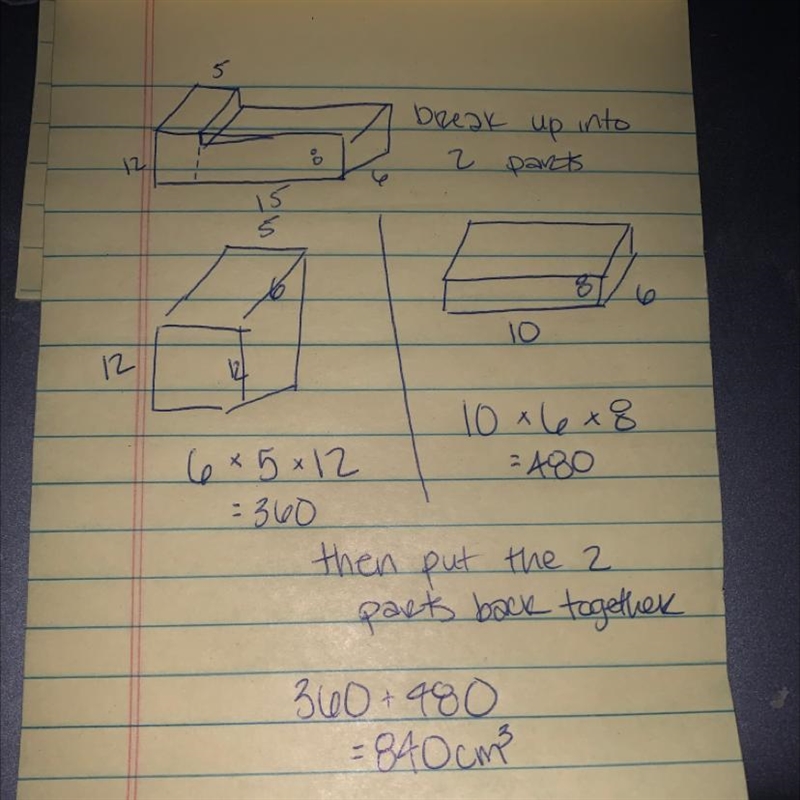 5
break up into
12
8
2 parts
6
15
5
6
8
6
12
12
10
10 × 6 × 8
= 480
6 × 5 × 12
= 360
then put the 2
parts back together
360 + 480
= 840cm³